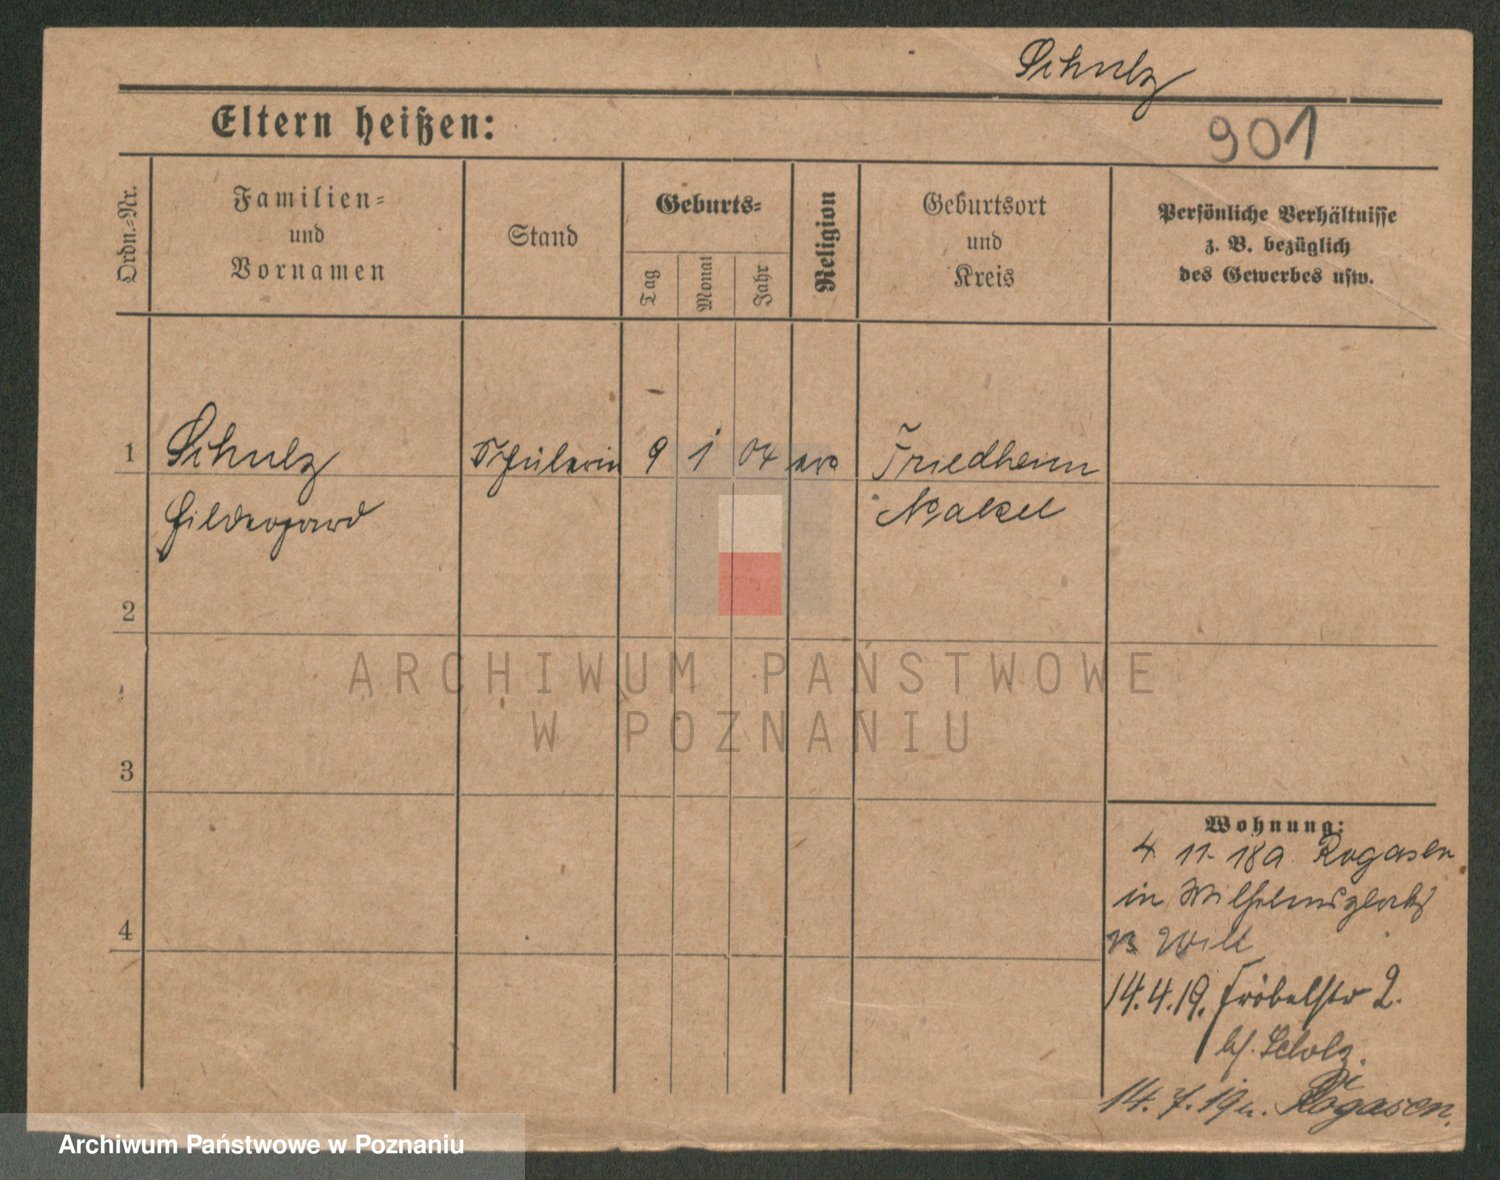 Schulz
Eltern heißen:
901
Ordn.-Nr.
Familien-
und
Vornamen
Stand
Geburts-
Tag
Monat
Jahr
Religion
Geburtsort
und
Kreis
Persönliche Verhältnisse
z. B. bezüglich
des Gewerbes usw.
1 Schulz Schülerin 9 1 04 Friedheim
Hildegard Nakel
2
3
4
Wohnung:
4 11 18 a Rogasen
in Wilhelmsplatz
14.4.19. Fröbelstr 2.
b/. Scholz.
14.7.19 n. Rogasen.
ARCHIWUM PAŃSTWOWE
W POZNANIU
Archiwum Państwowe w Poznaniu